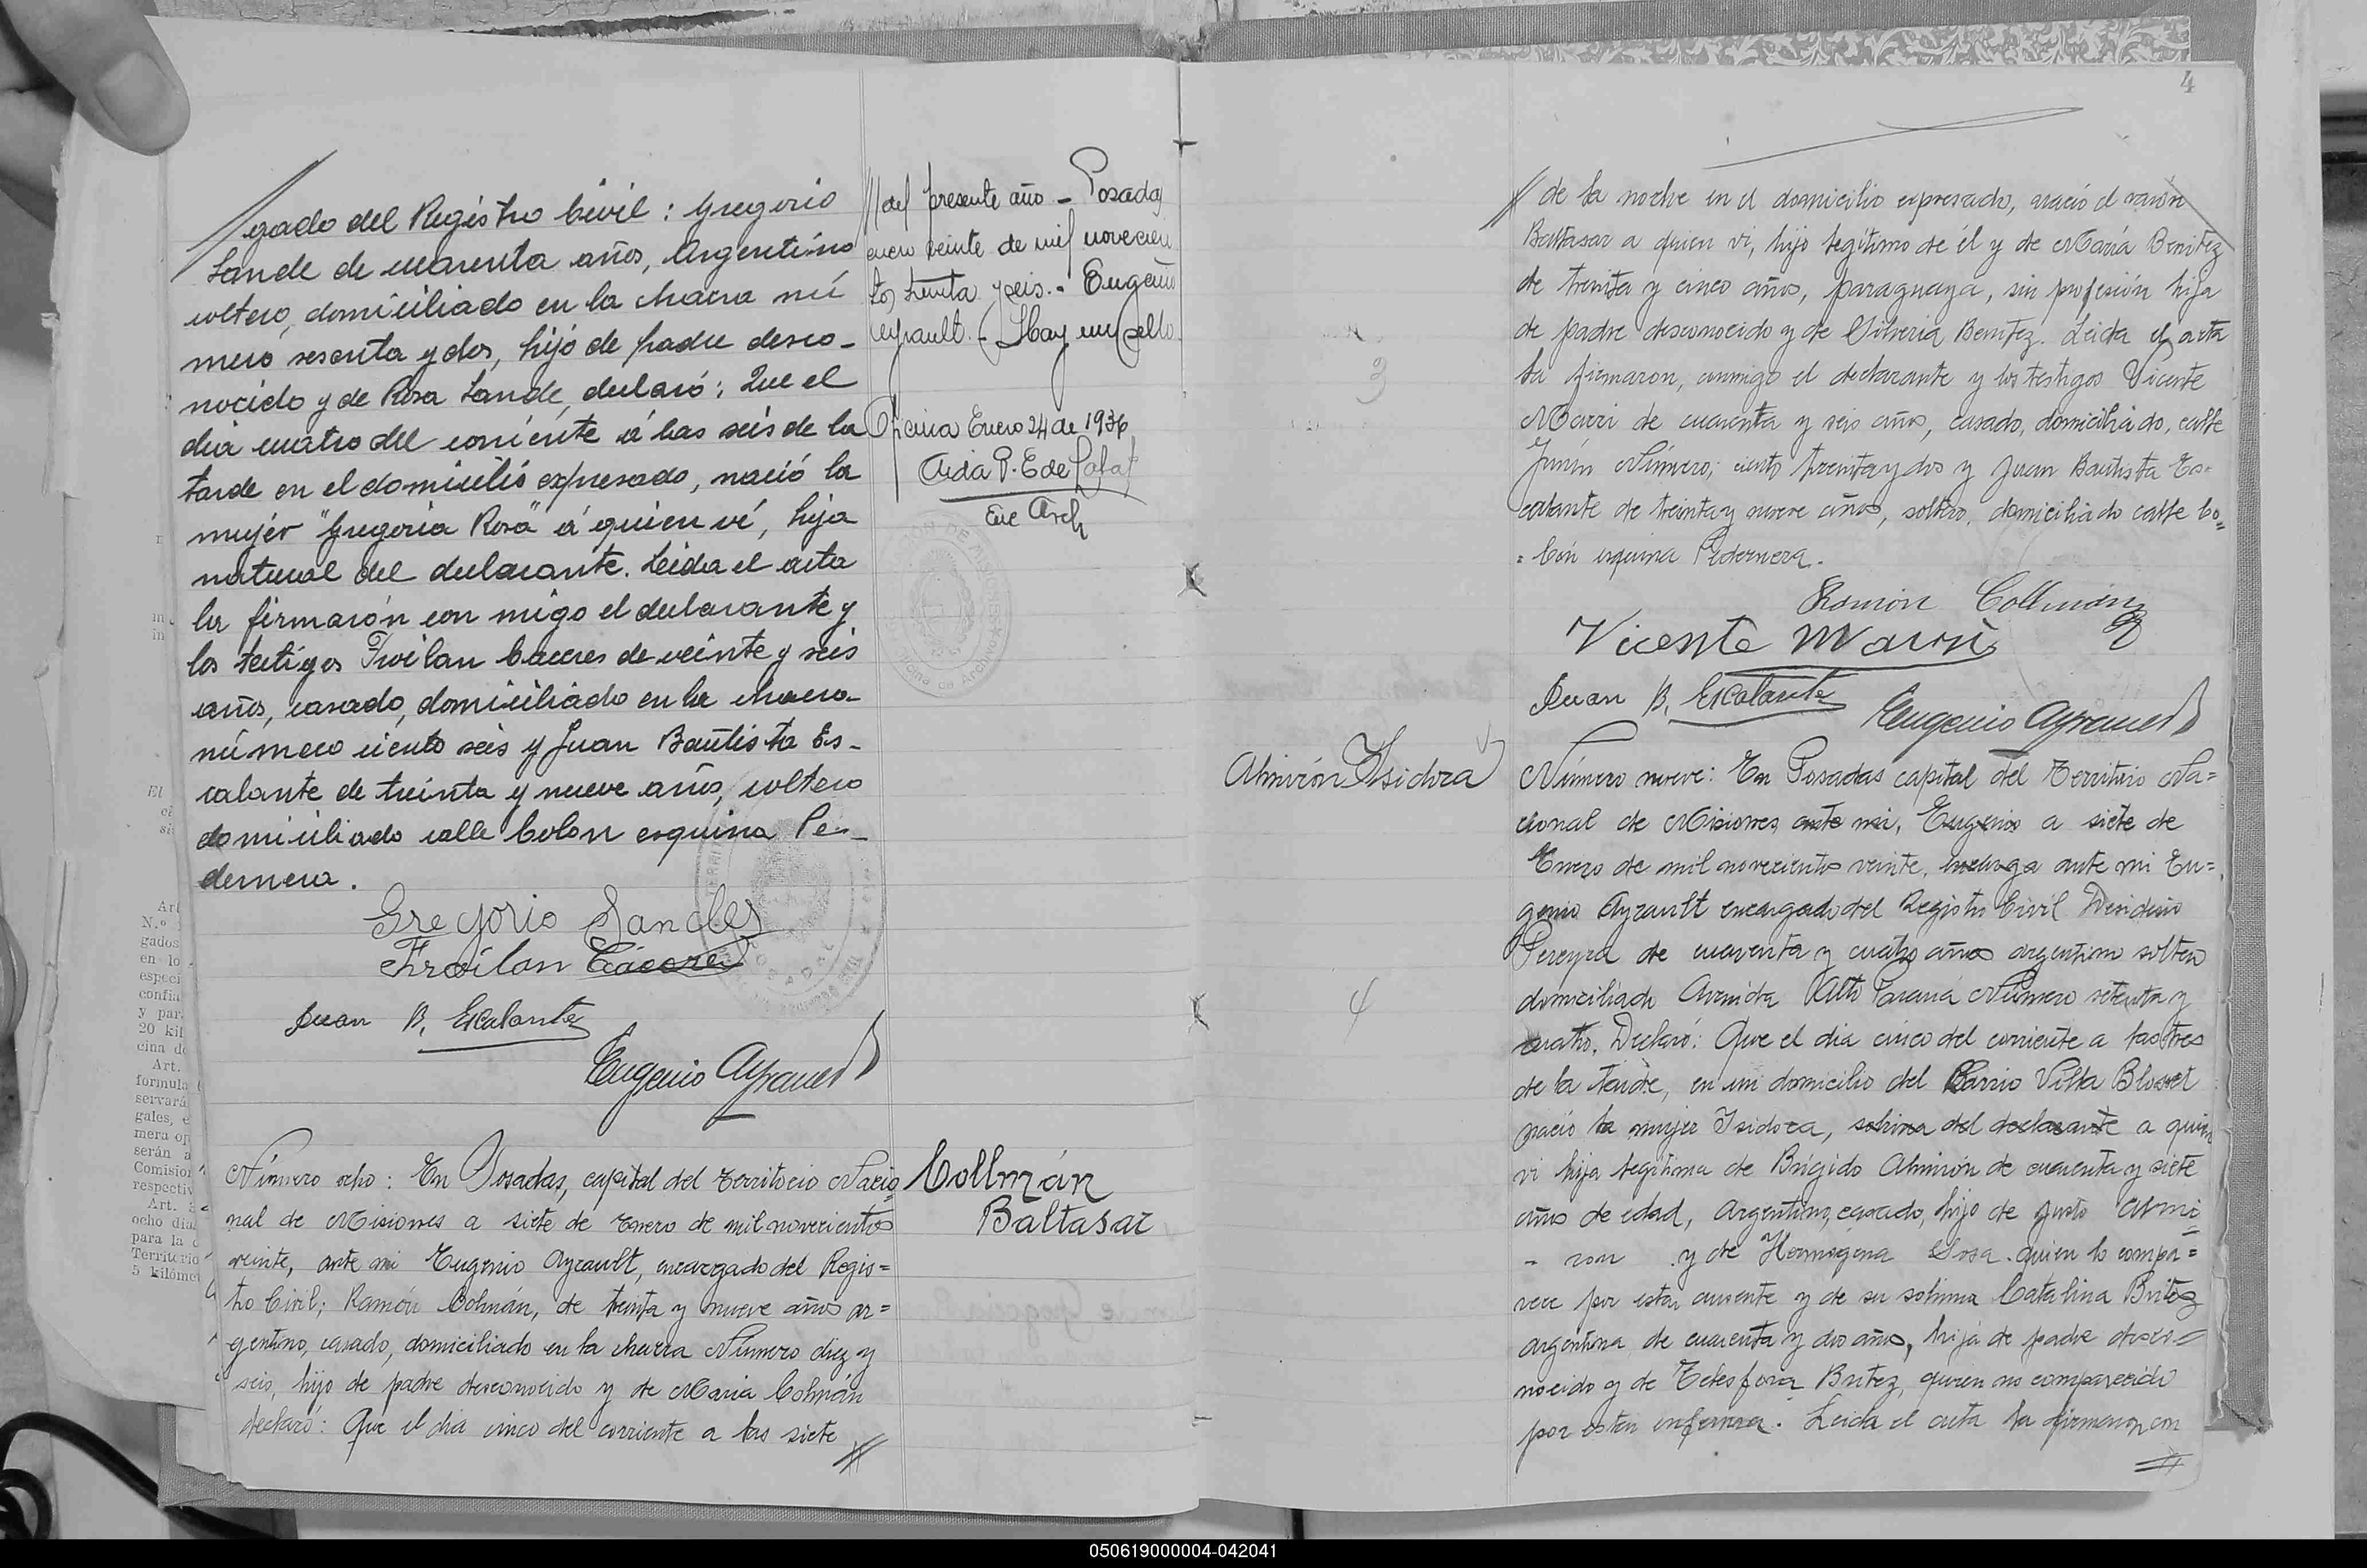 gado del Registro Civil: Gregorio
Sande de cuarenta años, Argentino
soltero, domiciliado en la chacra nú
mero sesenta y dos, hijo de padre desco-
nocido y de Rosa Sande, declaró: Que el
dia cuatro del corriente á las seis de la
tarde en el domicilio expresado, nació la
mujer "Gregoria Rosa" á quien ví, hija
natural del declarante. Leida el acta
la firmarón con migo el declarante y
los testigos Froilan Caceres de veinte y seis
años, casado, domiciliado en la chacra
número ciento seis y Juan Bautista Es-
calante de treinta y nueve años, soltero
domiciliado calle Colon esquina Pe-
dernera.
Gregorio Sandes
Froilan Cáceres
Juan B. Escalante
Eugenio Ayrault
Número ocho: En Posadas, capital del Territorio Nacio
nal de Misiones a siete de Enero de mil novecientos
veinte, ante mi Eugenio Ayrault, encargado del Regis=
tro Civil; Ramón Colmán, de treinta y nueve años ar=
gentino, casado, domiciliado en la chacra Número diez y
seis, hijo de padre desconocido y de Maria Colmán
declaró: Que el dia cinco del corriente a las siete
del presente año - Posadas
enero veinte de mil novecien
tos treinta y seis.- Eugenio
Ayrault.- Hay un sello.
Oficina Enero 24 de 1936
Aida P. E de
Enc Arch
Collmán
Baltasar
4
de la noche en el domicilio expresado, nació el varón
Baltasar a quien vi, hijo legítimo de él y de María Benitez
de treinta y cinco años, paraguaya, sin profesión hija
de padre desconocido y de Silveria Benitez. Leida el acta
la firmaron, conmigo el declarante y los testigos Vicente
Marri de cuarenta y seis años, casado, domiciliado, calle
Junin Número; ciento treinta y dos y Juan Bautista Es-
calante de treinta y nueve años, soltero, domiciliado calle Co=
=lón esquina Pedernera.
Ramón Collmán
Vicente Marri
Juan B. Escalante
Eugenio Ayrault
3
Almirón Isidora
4
Número nueve: En Posadas capital del Territorio Na=
cional de Misiones ante mi, Eugenio a siete de
Enero de mil novecientos veinte, encarga ante mi Eu=
genio Ayrault encargado del Registro Civil Desiderio
Pereyra de cuarenta y cuatro años argentino soltero
domiciliado Avenida Alto Paraná Número setenta y
cuatro. Declaró: Que el dia cinco del corriente a las tres
de la tarde, en un domicilio del Barrio Villa Blosset
nació la mujer Isidora, sobrina del declarante a quien
vi hija legitima de Brigido Almirón de cuarenta y siete
años de edad, Argentino, casado, hijo de Justo Almi
- ron y de Hermogena Sosa quien lo compa=
rece por estar ausente y de su sobrina Catalina Britez
argentina de cuarenta y dos años, hija de padre desco=
nocido y de Telesfora Britez, quien no compareció
por estar enferma. Leida el acta la firmaron con
050619000004-042041